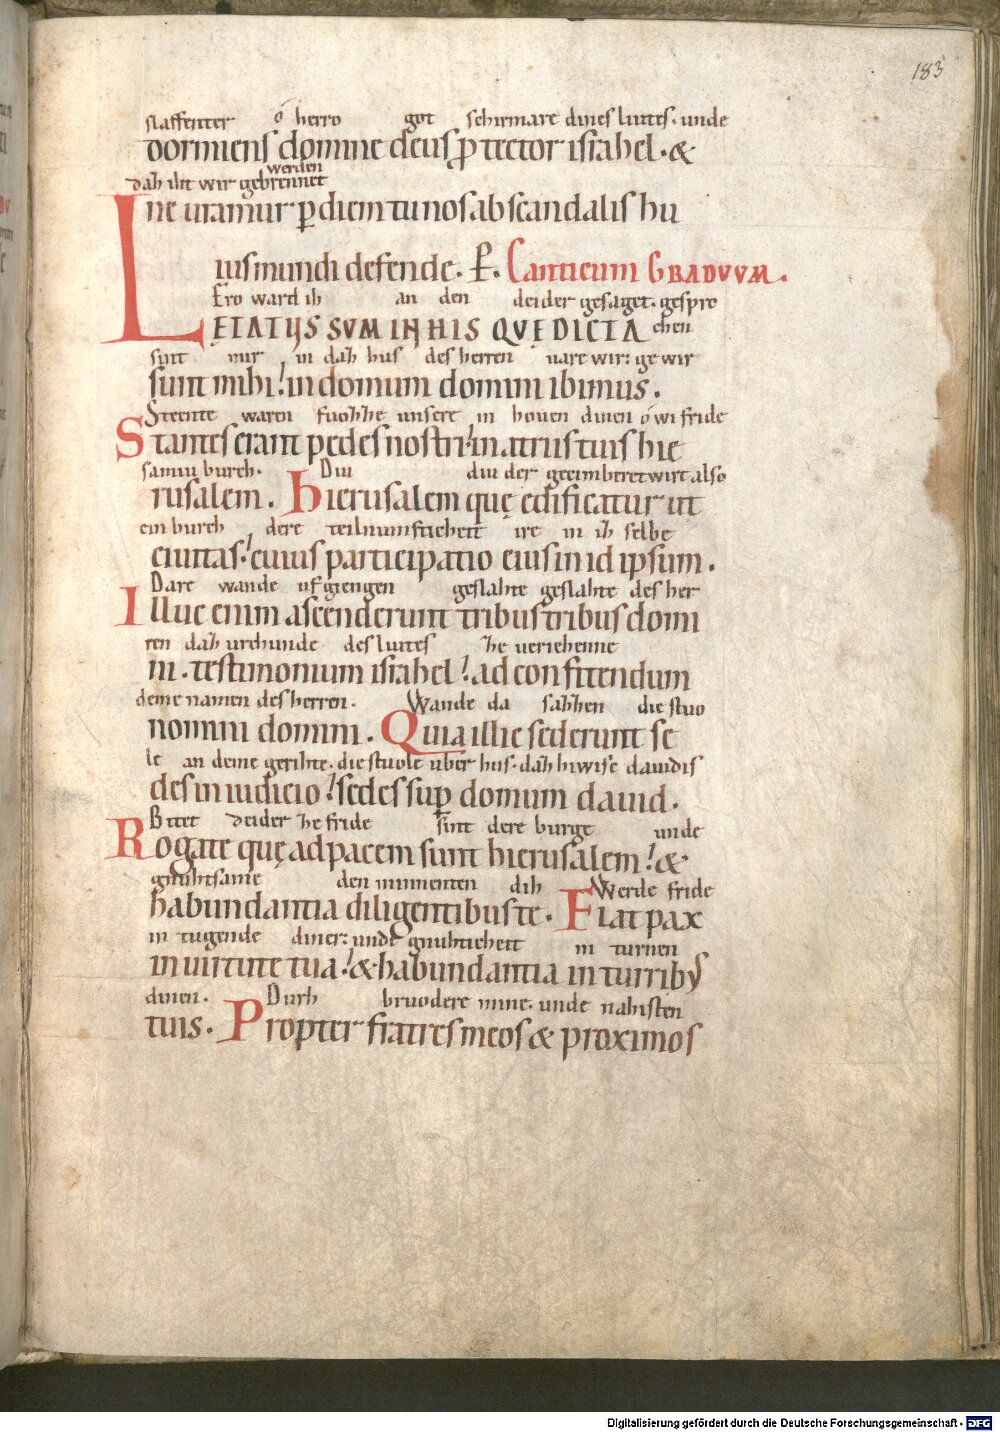 183
slaffenter ó herro got schirmare dines liutes. unde
dormiens domine deus ꝓtector israhel. &
werden
dah iht wir gebrennet
ne uramur ꝑ diem tu nos ab scandalis hu
ius mundi defende. P. Canticum GRADVVM.
Ero ward ih an den deider gesaget. gespro
LETATVS SVM IN HIS QVĘ DICTA chen
sint mir in dah hus des herren uare wir: ge wir
sunt mihi! in domum domini ibimus.
Steente waren fuohhe unsere in houen dinen ó wi fride
Stantes erant pedes nostri! in atriis tuis hie
samiu burch. Diu diu der gecimberet wirt also
rusalem. hierusalem quę edificatur ut
ein burch dere teilnumftieheit ire in ih selbe
ciuitas! cuius participatio eius in id ipsum.
Dare wande ufgiengen geslahte geslahte des her
Illuc enim ascenderunt tribus tribus domi
ren dah urchunde des liutes he ueriehenne
ni. testimonium israhel! ad confitendum
deme namen des herren. Wande da sahhen die stuo
nomini domini. Quia illic sederunt se
le an deme gerihte. die stuole uber hus. dah hiwise dauidis
des in iudicio! sedes suꝑ domum dauid.
Bitet deider he fride sint dere burge unde
Rogate quę ad pacem sunt hierusalem! &
gnuhtsame den minnenten dih Werde fride
habundantia diligentibus te. Fiat pax
in tugende diner: unde gnuhticheit in turnen
in uirtute tua! & habundantia in turribus
dinen. Durh bruodere mine. unde nahisten
tuis. Propter fratres meos & proximos
Digitalisierung gefördert durch die Deutsche Forschungsgemeinschaft - DFG